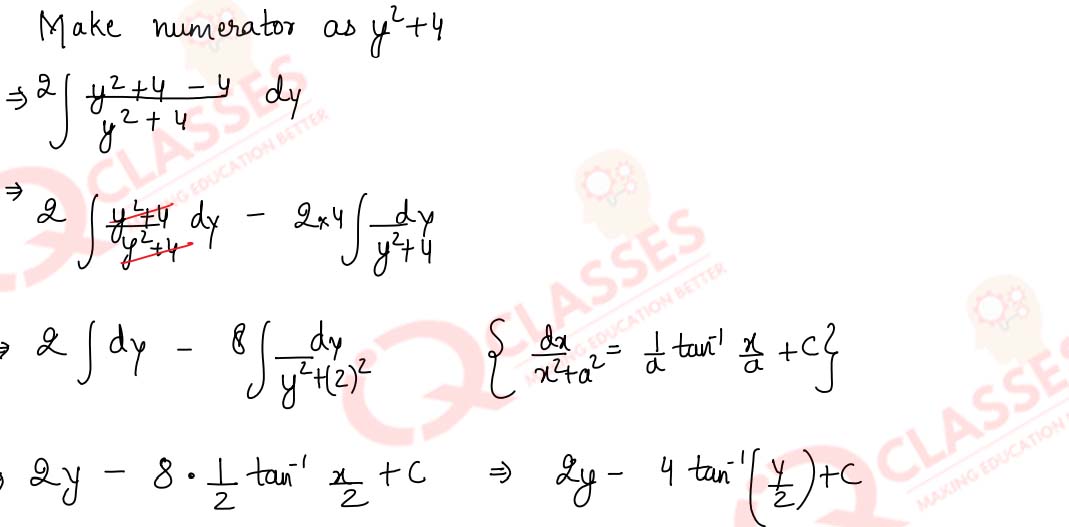 Make numerator as y²+4
⇒ 2 ∫ (y²+4 - 4)/(y²+4) dy
⇒ 2 ∫ (y²+4)/(y²+4) dy - 2×4 ∫ dy/(y²+4)
⇒ 2 ∫ dy - 8 ∫ dy/(y²+(2)²) { dx/(x²+a²) = 1/a tan⁻¹ x/a + C }
⇒ 2y - 8 · 1/2 tan⁻¹ x/2 + C ⇒ 2y - 4 tan⁻¹ (y/2) + C
CLASSES
MAKING EDUCATION BETTER
CLASSES
MAKING EDUCATION BETTER
CLASSES
MAKING EDUCATION